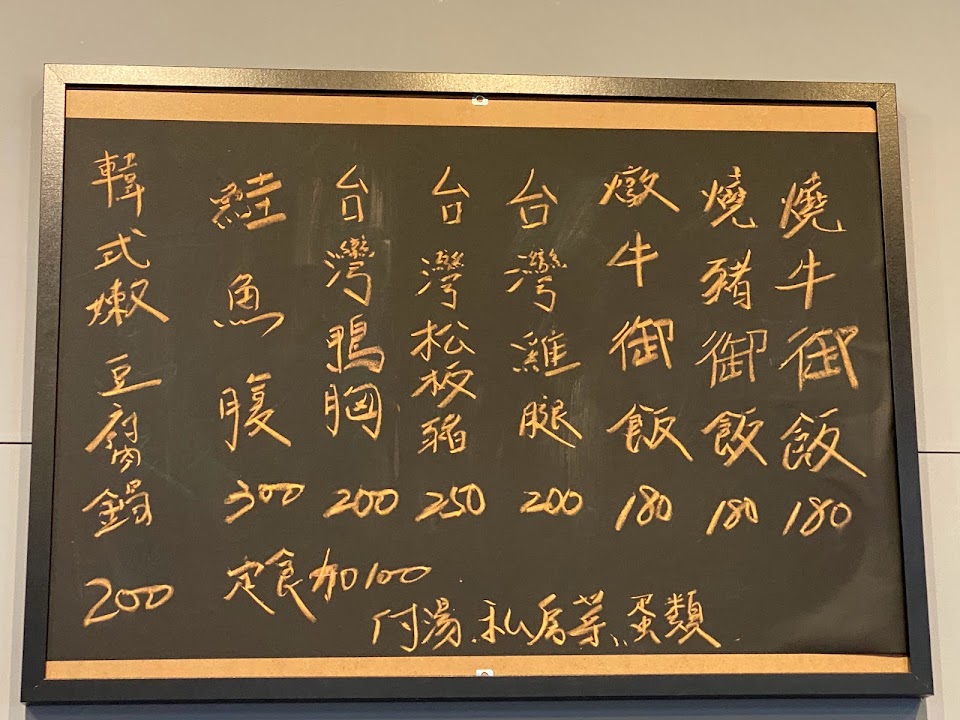 燒牛御飯 180
燒豬御飯 180
燉牛御飯 180
台灣雞腿 200
台灣松板豬 250
台灣鴨胸 200
鮭魚腹 300
韓式嫩豆腐鍋 200
定食加100
付湯、私房菜、蛋類